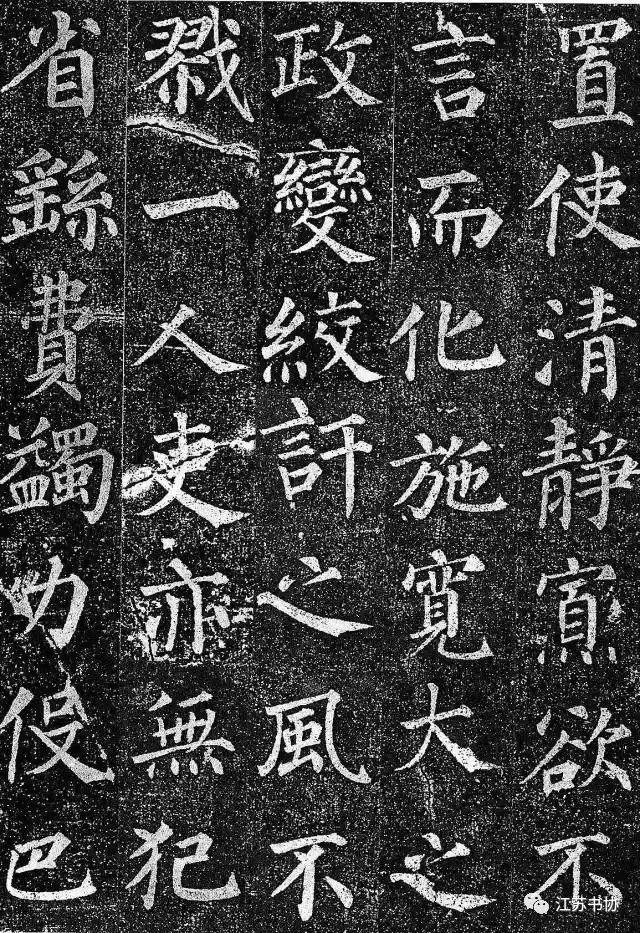 置使清靜寡欲不
言而化施寬大之
政變絞訐之風不
戮一人吏亦無犯
省繇費蠲力伇巴
江苏书协